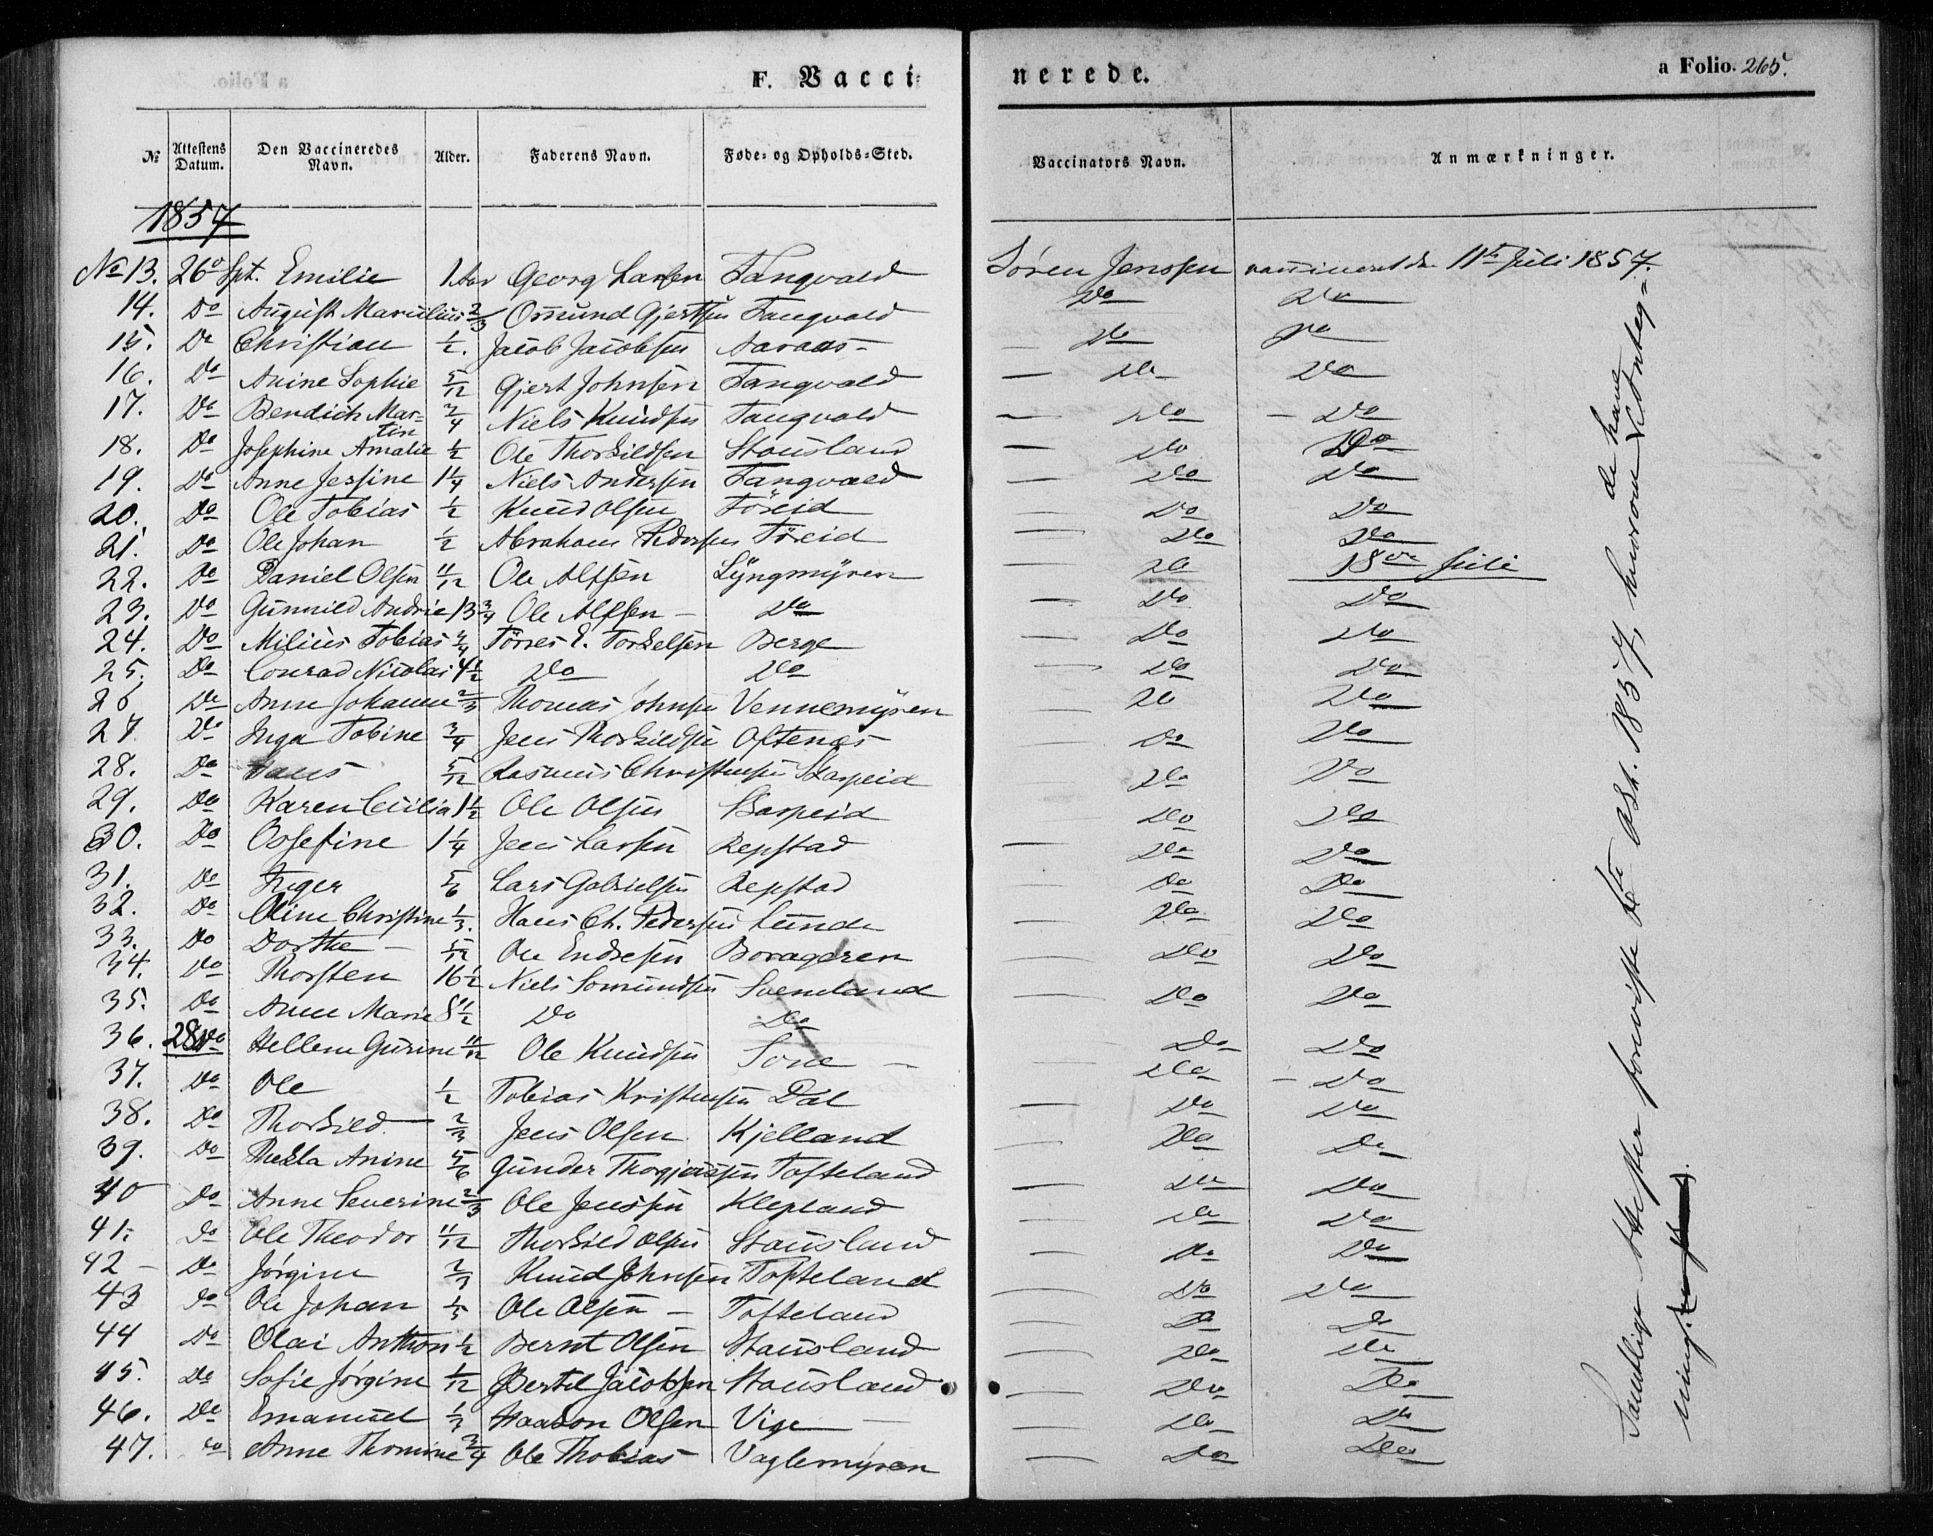 F. Vacci-
nerede.
a Folio. 265.
№ | Attestens Datum. | Den Vaccineredes Navn. | Alder. | Faderens Navn. | Føde- og Opholds-Sted. | Vaccinators Navn. | Anmærkninger.
1857
No 13. 26de Spt. Emilie 1 Aar Georg Larsen Tangvald Søren Jenssen vaccineret den 11te Juli 1857.
14. Do August Marculius 2/3 Omund Gjertsen Tangvald Do Do
15. Do Christian 1/2. Jacob Jacobsen Aaraas - Do Do
16. Do Anine Sophie 5/12 Gjert Johnsen Tangvald Do Do
17. Do Bendich Mar-tin 3/4 Niels Knudsen Tangvald Do Do
18. Do Josephine Amalie 1/2 Ole Thorkildsen Stousland Do Do
19. Do Anne Jessine 1 1/4 Niels Andersen Tangvald Do Do
20. Do Ole Tobias 1/2 Knud Olsen Töreid Do Do
21. Do Ole Johan 1/2 Abraham Pedersen Töreid Do Do
22. Do Daniel Olsen 11/12 Ole Alfsen Lÿngmÿren Do 18de Juli
23. Do Gunnild Andrie 13 3/4 Ole Alfsen - Do Do Do
24. Do Milius Tobias 3/4 Törres E. Torkelsen Berge Do Do
25. Do Conrad Nicolai 4 1/2 Do Do Do Do
26 Do Anne Johanne 2/3 Thomas Johnsen Vennemÿren Do Do
27. Do Inga Tobine 3/4 Jens Thorkildsen Oftenæs Do Do
28. Do Hans 5/12 Rasmus Christensen Skarpeid Do Do
29. Do Karen Cecilia 1 1/2 Ole Olsen Skarpeid Do Do
30. Do Ossefine 1 1/4 Jens Larsen Repstad Do Do
31. Do Inger 5/6 Lars Gabrielsen Repstad Do Do
32. Do Oline Christine 1/3. Hans Ch. Pedersen Lunde Do Do
33. Do Dorthe - 5/12 Ole Endresen Borageren Do Do
34. Do Thorsten 16 1/2 Niels Somundsen Svendland Do Do
35. Do Anne Marie 8 1/2 Do Do Do Do
36. 28de Hellene Gurine 11/12 Ole Knudsen Sone Do Do
37. Do Ole 1/2 Tobias Kristensen Dal Do Do
38. Do Thorkild 2/3 Jens Olsen Kjelland Do Do
39. Do Thekla Anine 5/6 Gunder Thorgjersen Tofteland Do Do
40 Do Anne Severine 2/3 Ole Jenssen Klepland Do Do
41. Do Ole Theodor 11/12 Thorkild Olsen Stousland Do Do
42 - Do Jørgine 2/3 Knud Johnsen Tofteland Do Do
43 Do Ole Johan 1/3 Ole Olsen - Tofteland Do Do
44 Do Olai Anthon 1/2 Bernt Olsen Stousland Do Do
45. Do Sofie Jørgine 1/12 Bertel Jacobsen Stousland Do Do
46. Do Emanuel 1/3 Haakon Olsen Vige Do Do
47. Do Anne Thomine 3/4 Ole Thobias Vaglemÿren Do Do
Samtlige Attester foreviste 1ste Okt. 1857, hvorom de have Vedtegning